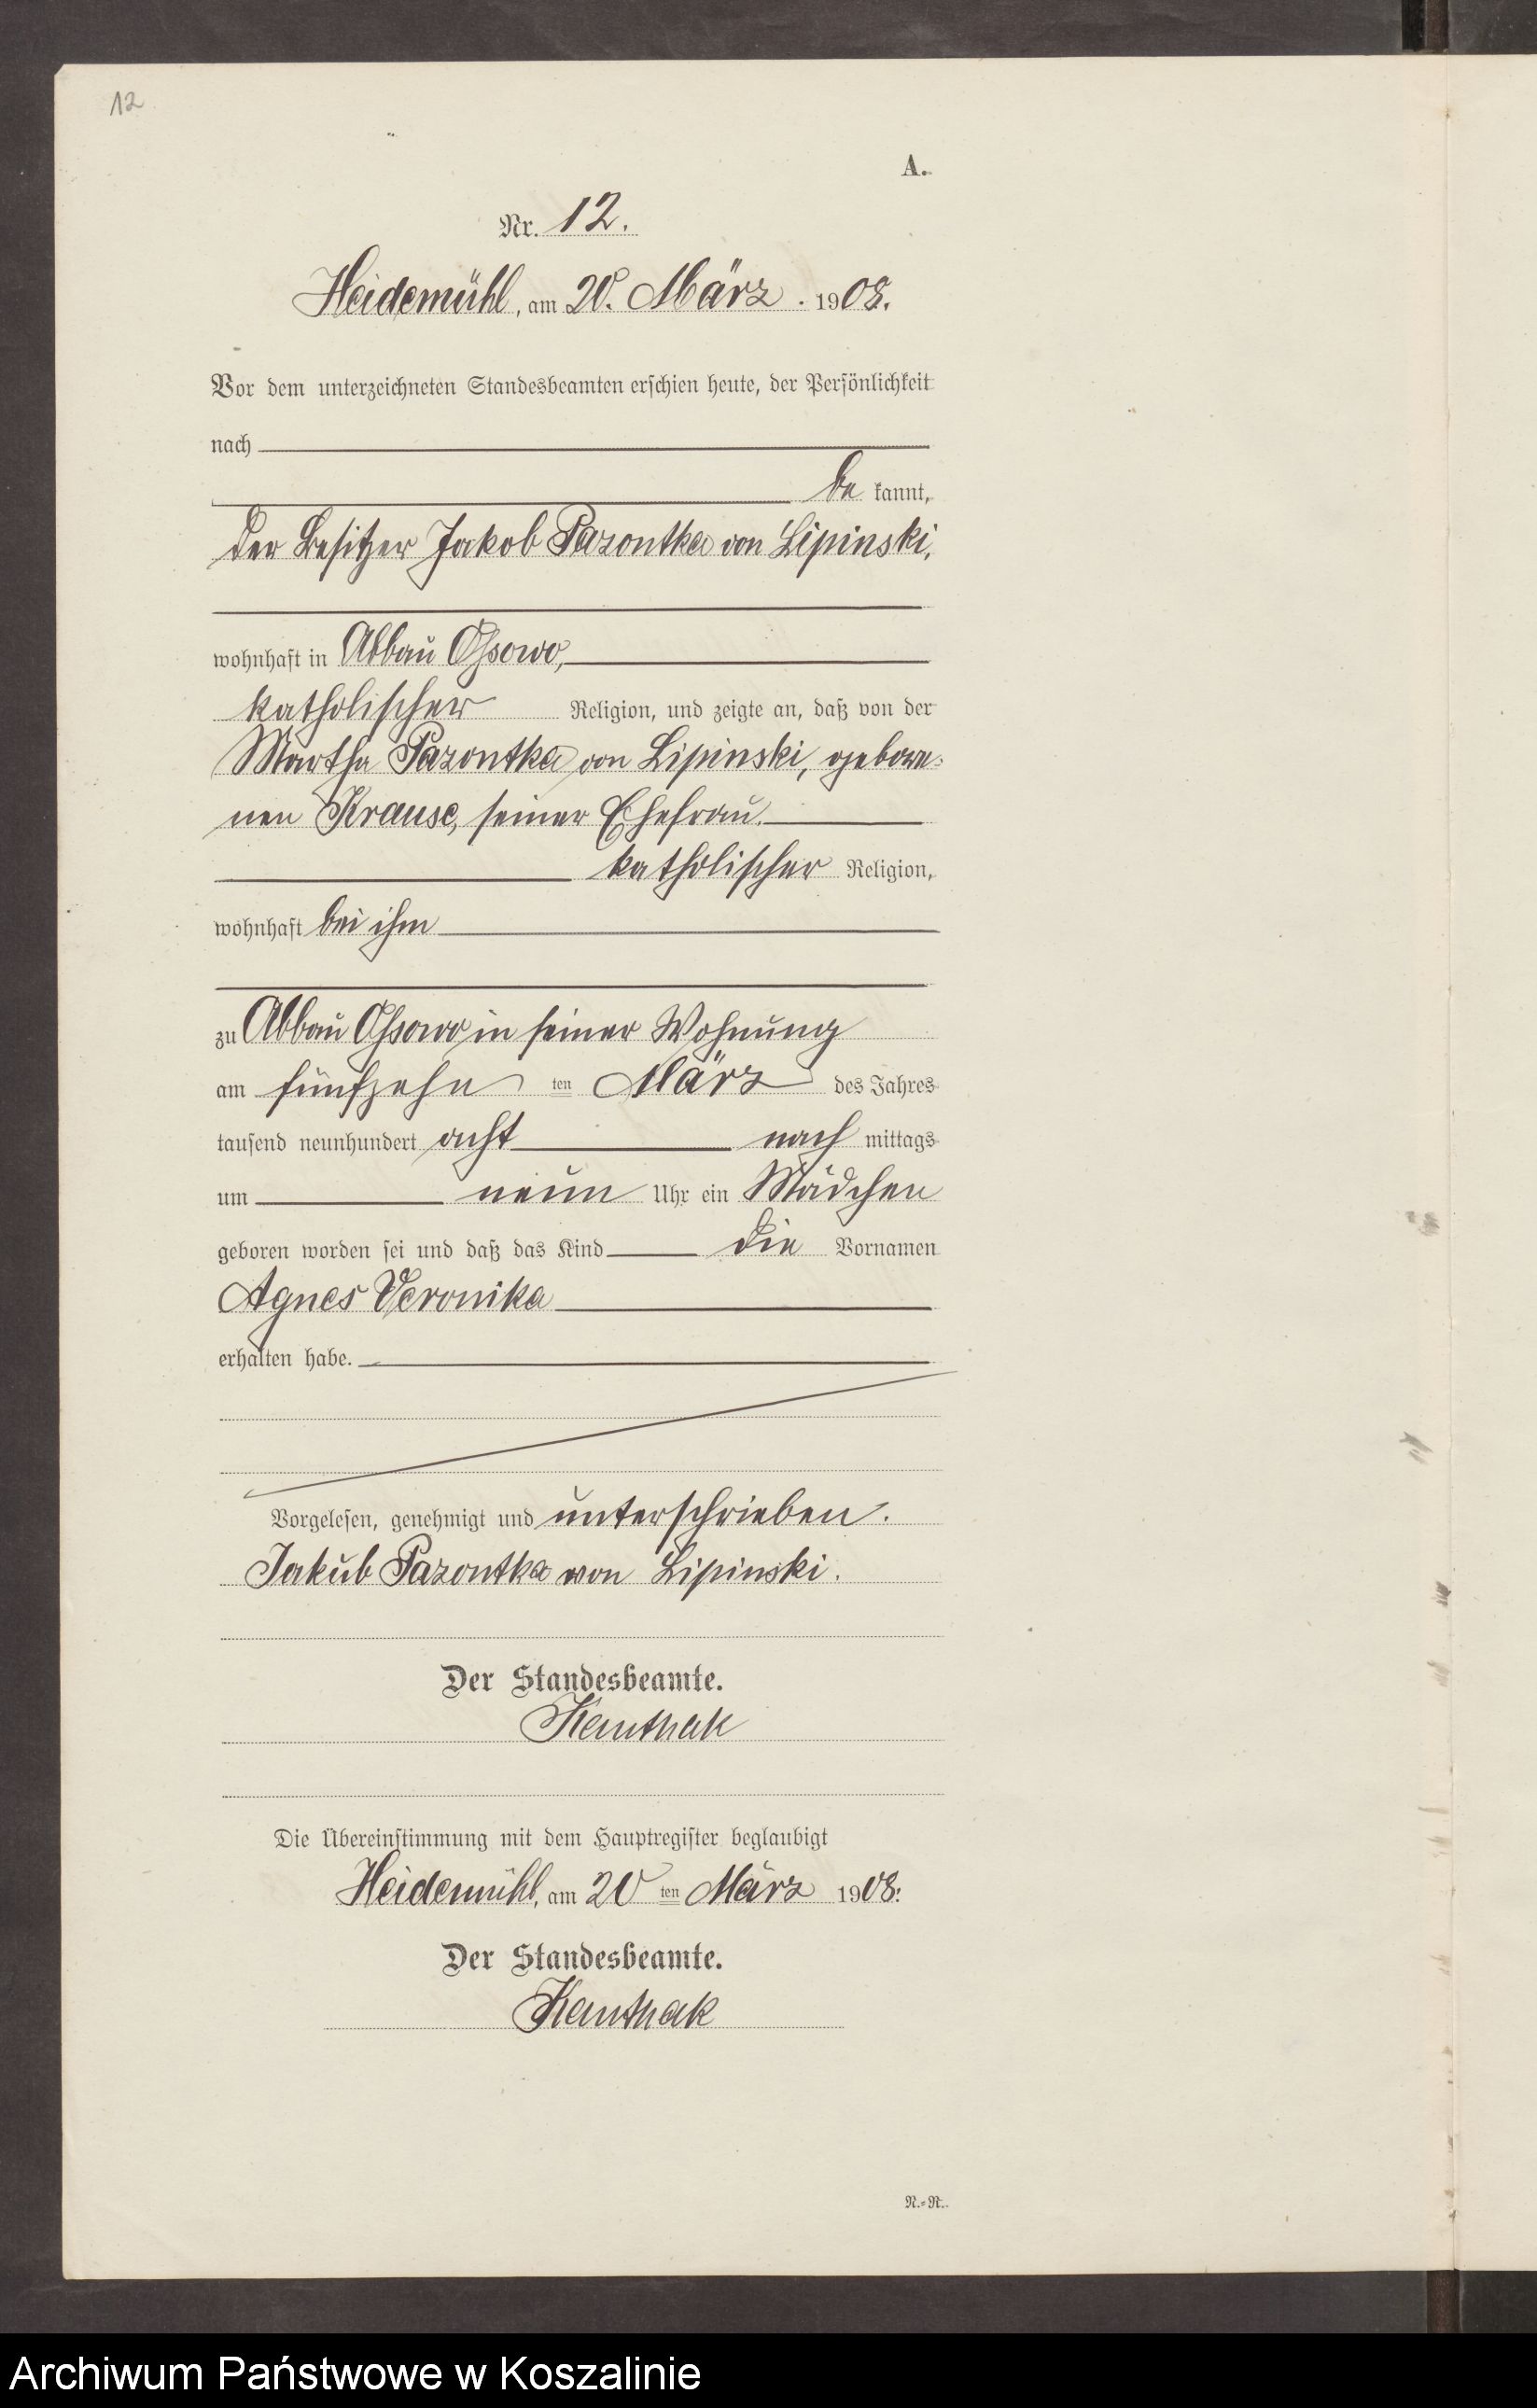 12
A.
Nr. 12.
Heidemühl, am 20. März. 1908.
Vor dem unterzeichneten Standesbeamten erschien heute, der Persönlichkeit
nach
be kannt,
der Besitzer Jakob Pazontka von Lipinski,
wohnhaft in Abbau Ossowo,
katholischer Religion, und zeigte an, daß von der
Martha Pazontka von Lipinski, gebore-
nen Krause, seiner Ehefrau.
katholischer Religion,
wohnhaft bei ihm
zu Abbau Ossowo in seiner Wohnung
am fünfzehn ten März des Jahres
tausend neunhundert acht nach mittags
um neun Uhr ein Mädchen
geboren worden sei und daß das Kind die Vornamen
Agnes Veronika
erhalten habe.
Vorgelesen, genehmigt und unterschrieben.
Jakub Pazontka von Lipinski.
Der Standesbeamte.
Die Übereinstimmung mit dem Hauptregister beglaubigt
Heidemühl, am 20 ten März 1908.
Der Standesbeamte.
N.-R.
Archiwum Państwowe w Koszalinie